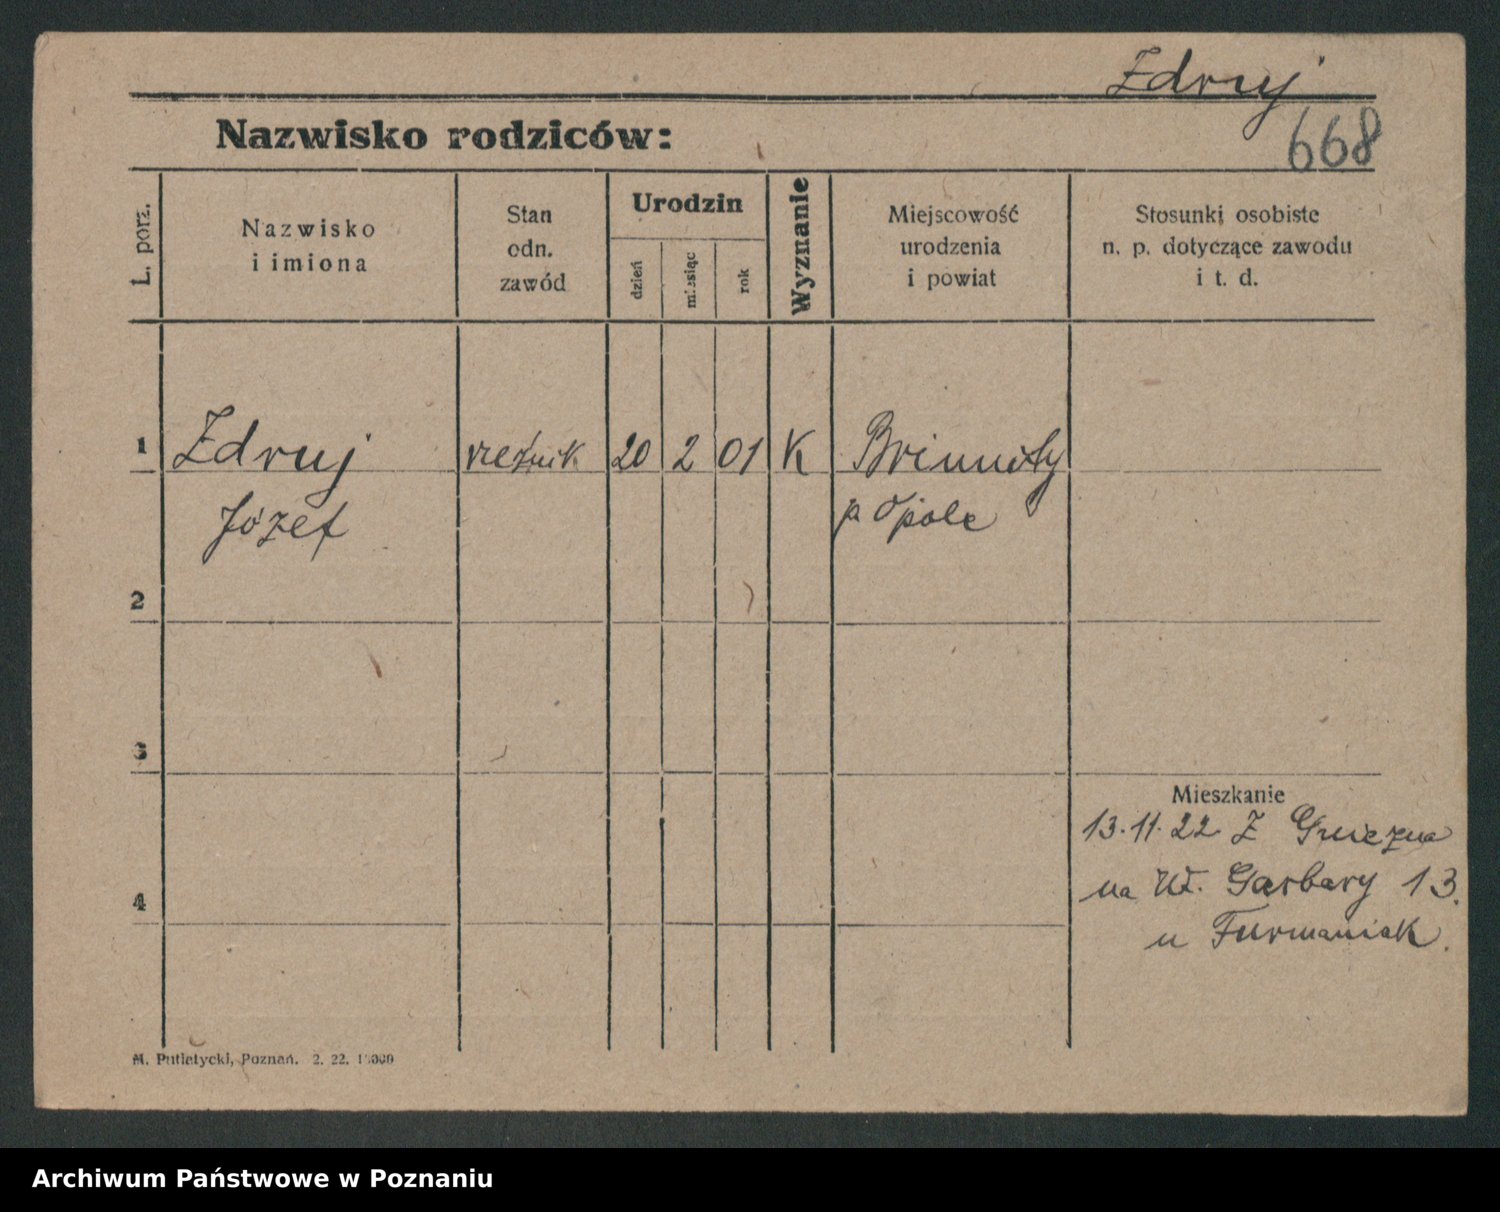 Zdruj
Nazwisko rodziców:
668
L. porz.
Nazwisko
i imiona
Stan
odn.
zawód
Urodzin
dzień
miesiąc
rok
Wyznanie
Miejscowość
urodzenia
i powiat
Stosunki osobiste
n. p. dotyczące zawodu
i t. d.
1 Zdruj rzeźnik 20 2 01 K
Józef p Opole
2
3
Mieszkanie
13.11.22 Z Gniezna
na Garbary 13.
u Furmaniak.
4
M. Putiatycki, Poznań. 2. 22.
Archiwum Państwowe w Poznaniu